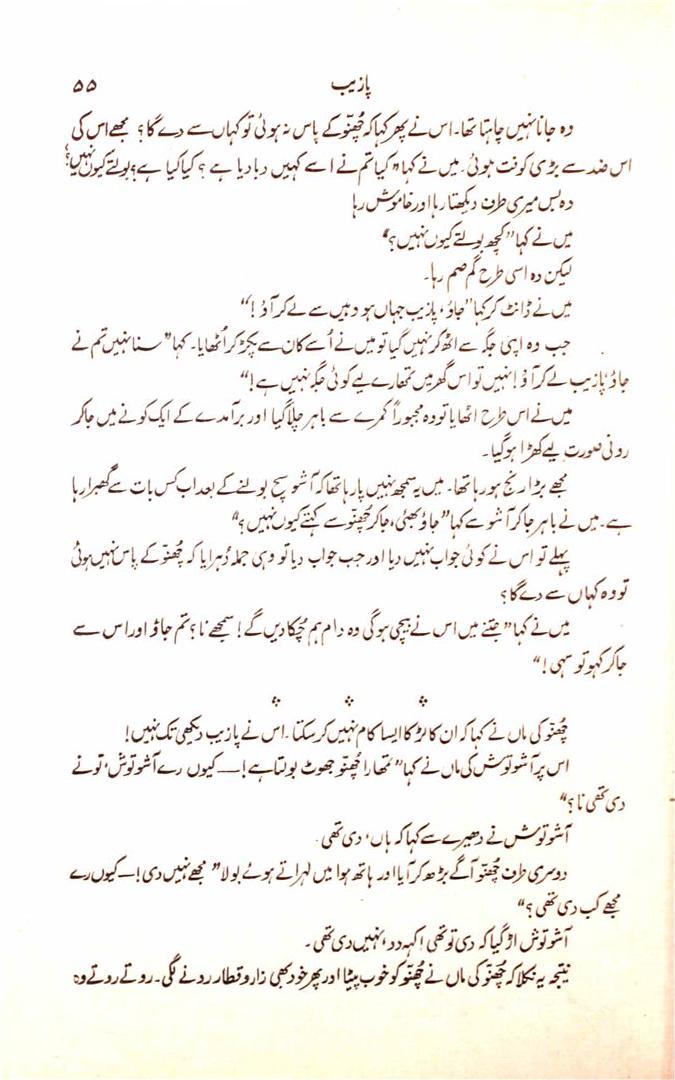 پازیب ۵۵
وہ جانا نہیں چاہتا تھا۔ اس نے پھر کہا کہ چھُنّو کے پاس نہ ہوئی تو کہاں سے دے گا؟ مجھے اس کی
اس ضد سے بڑی کوفت ہوئی۔ میں نے کہا "کیا تم نے اسے کہیں دبا دیا ہے؟ کیا کیا ہے؟ بولتے کیوں نہیں؟"
وہ بس میری طرف دیکھتا رہا اور خاموش رہا
میں نے کہا "کچھ بولتے کیوں نہیں؟"
لیکن وہ اسی طرح گم صم رہا۔
میں نے ڈانٹ کر کہا "جاؤ، پازیب جہاں ہو وہیں سے لے کر آؤ!"
جب وہ اپنی جگہ سے اٹھ کر نہیں گیا تو میں نے اُسے کان سے پکڑ کر اُٹھایا۔ کہا "سنا نہیں تم نے
جاؤ پازیب لے کر آؤ! نہیں تو اس گھر میں تمھارے لیے کوئی جگہ نہیں ہے!"
میں نے اس طرح اٹھایا تو وہ مجبوراً کمرے سے باہر چلا گیا اور برآمدے کے ایک کونے میں جا کر
رونی صورت لیے کھڑا ہو گیا۔
مجھے بڑا رنج ہو رہا تھا۔ میں یہ سمجھ نہیں پا رہا تھا کہ آشو سچ بولنے کے بعد اب کس بات سے گھبرا رہا
ہے۔ میں نے باہر جا کر آشو سے کہا "جاؤ بھئی، جا کر چھُنّو سے کہتے کیوں نہیں؟"
پہلے تو اس نے کوئی جواب نہیں دیا اور جب جواب دیا تو وہی جملہ دُہرایا کہ چھُنّو کے پاس نہیں ہوئی
تو وہ کہاں سے دے گا؟
میں نے کہا "جتنے میں اس نے بیچی ہوگی وہ دام ہم چُکا دیں گے! سمجھے نا؟ تم جاؤ اور اس سے
جا کر کہو تو سہی!"
چھُنّو کی ماں نے کہا کہ ان کا لڑکا ایسا کام نہیں کر سکتا۔ اس نے پازیب دیکھی تک نہیں!
اس پر آشوتوش کی ماں نے کہا "تمھارا چھُنّو جھوٹ بولتا ہے! — کیوں رے آشوتوش، تو نے
دی تھی نا؟"
آشوتوش نے دھیرے سے کہا کہ ہاں، دی تھی۔
دوسری طرف چھُنّو آگے بڑھ کر آیا اور ہاتھ ہوا میں لہراتے ہوئے بولا "مجھے نہیں دی! — کیوں رے
مجھے کب دی تھی؟"
آشوتوش اڑ گیا کہ دی تو تھی! کہہ دو، نہیں دی تھی۔
نتیجہ یہ نکلا کہ چھُنّو کی ماں نے چھُنّو کو خوب پیٹا اور پھر خود بھی زار و قطار رونے لگی۔ روتے روتے وہ